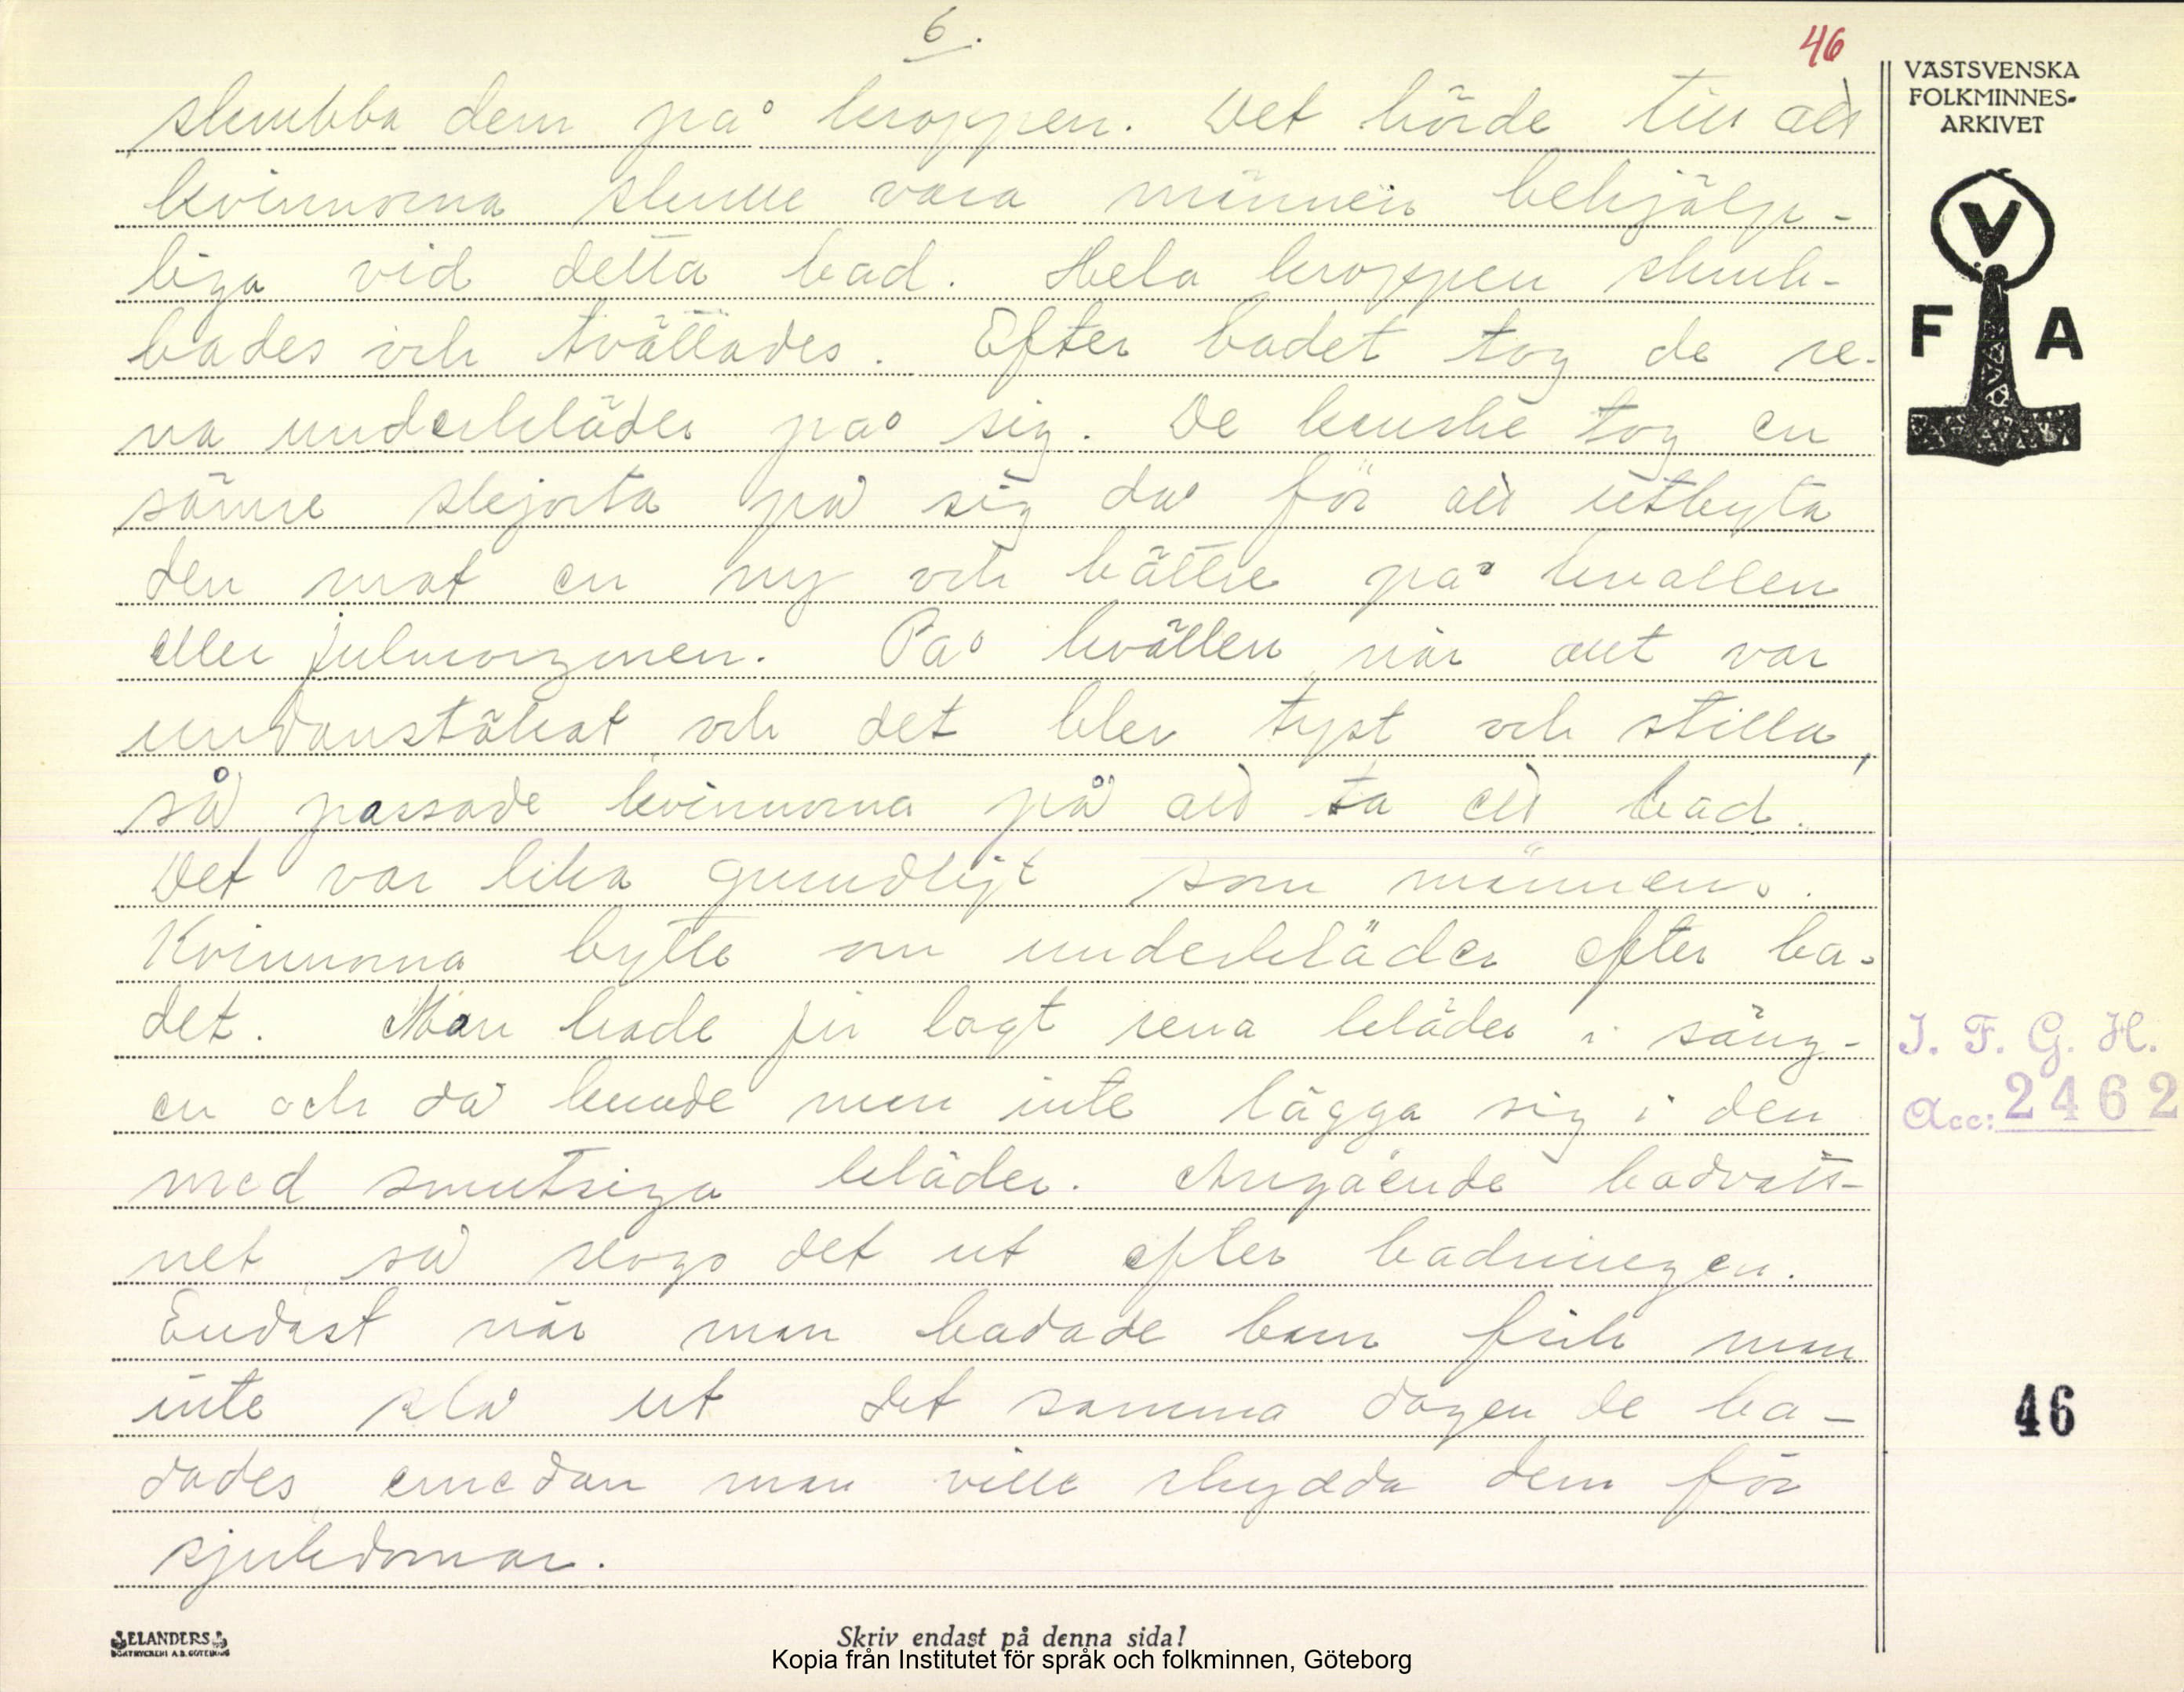 6.
46
VÄSTSVENSKA
FOLKMINNES-
ARKIVET
V
F A
skrubba dem på kroppen. Det hörde till att
kvinnorna skulle vara männen behjälp-
liga vid detta bad. Hela kroppen skrub-
bades och tvållades. Efter badet tog de re-
na underkläder på sig. De kanske tog en
sämre skjorta på sig då för att utbyta
den mot en ny och bättre på kvällen
eller julmorgonen. På kvällen när allt var
undanstökat och det blev tyst och stilla,
så passade kvinnorna på att ta ett bad.
Det var lika grundligt som männens.
Kvinnorna bytte om underkläder efter ba-
det. Man hade ju lagt rena kläder i säng-
en och då kunde man inte lägga sig i den
med smutsiga kläder. Angående badvatt-
net så slogs det ut efter badningen.
Endast när man badade barn fick man
inte slå ut det samma dagen de ba-
dades, emedan man ville skydda dem för
sjukdomar.
I. F. G. H.
Acc: 2462
46
ELANDERS
BOKTRYCKERI A.B. GÖTEBORG
Skriv endast på denna sida!
Kopia från Institutet för språk och folkminnen, Göteborg